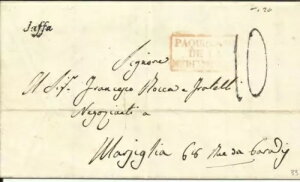 Jaffa
PAQUEBOTS
DE LA
MEDITERRANEE
10
Signore
Il Sig. Francesco Rocca e fratelli
Negozianti a
Marsiglia 68 Rue de Paradis